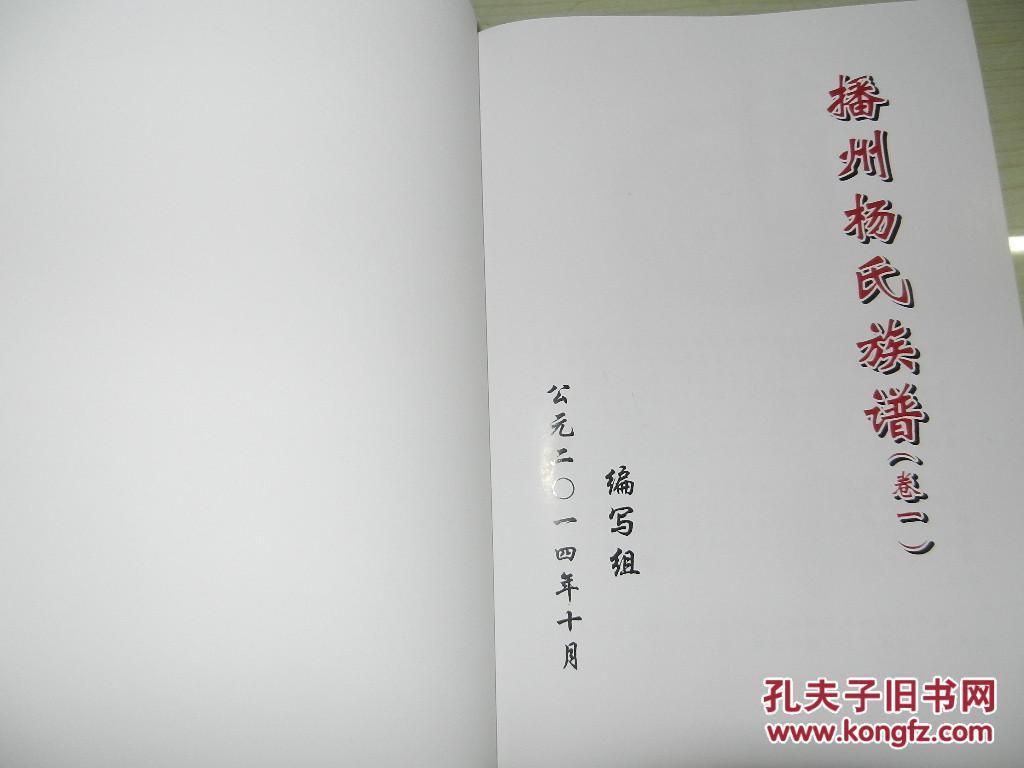 播州杨氏族谱(卷一)
编写组
公元二〇一四年十月
孔夫子旧书网
www.kongfz.com